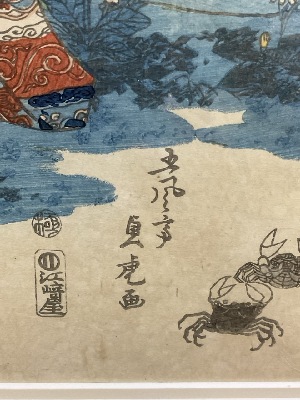 五風亭
貞虎画
極
江崎屋